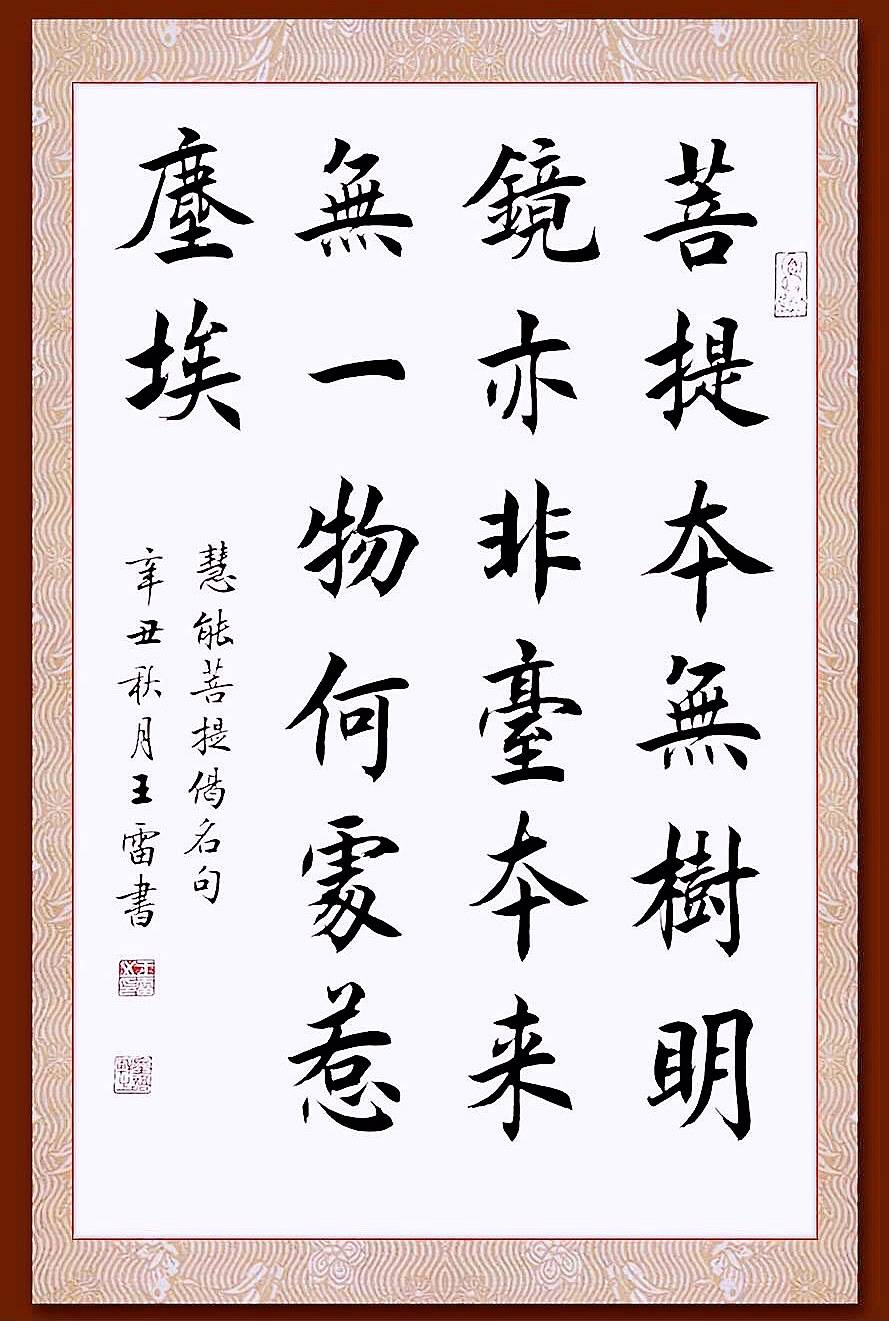 菩提本無樹明
鏡亦非臺本来
無一物何處惹
塵埃
慧能菩提偈名句
辛丑秋月王雷書